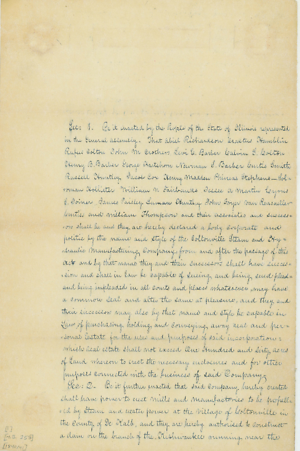 Sec 1. Be it enacted by the People of the State of Illinois represented
in the General Assembly. That Eliel Richardson Erastus Hamblin
Rufus Colton John M Crothers Levi C. Barber Calvin S. Colton
Henry B. Barber George
Russell Huntley Jacob Cox Henry Madden Phineas Stephens
Hollister William N Fairbanks Jesse C. Martin Lyons
James Paisley Sumner Huntley John Van Rensselaer
and William Thompson and their associates and success
ors shall be and they are hereby declared a body corporate and
politic by the name and style of the Coltonville Steam and Hy
draulic Manufacturing Company from and after the passage of this
Act and by that name they and their successors shall have succes
sion and shall in law be capable of suing and being sued plead
and being impleaded in all courts and places whatsoever may have
a common seal and alter the same at pleasure and they and
their successors may also by that name and style be capable in
Law of purchasing holding and conveying away real and per
sonal Estate for the use and purposes of said incorporation
whole real estate shall not exceed One Hundred and Sixty acres
of Land whereon to erect the necessary and for other
purposes connected with the business of said Company.
Sec 2. Be it further enacted that said Company hereby created
shall have power to erect Mills and Manufactories to be propell
ed by Steam and water power at the Village of Coltonville in
the County of De Kalb, and they are hereby authorised to construct
a dam on the branch of the Kishwaukee running near the